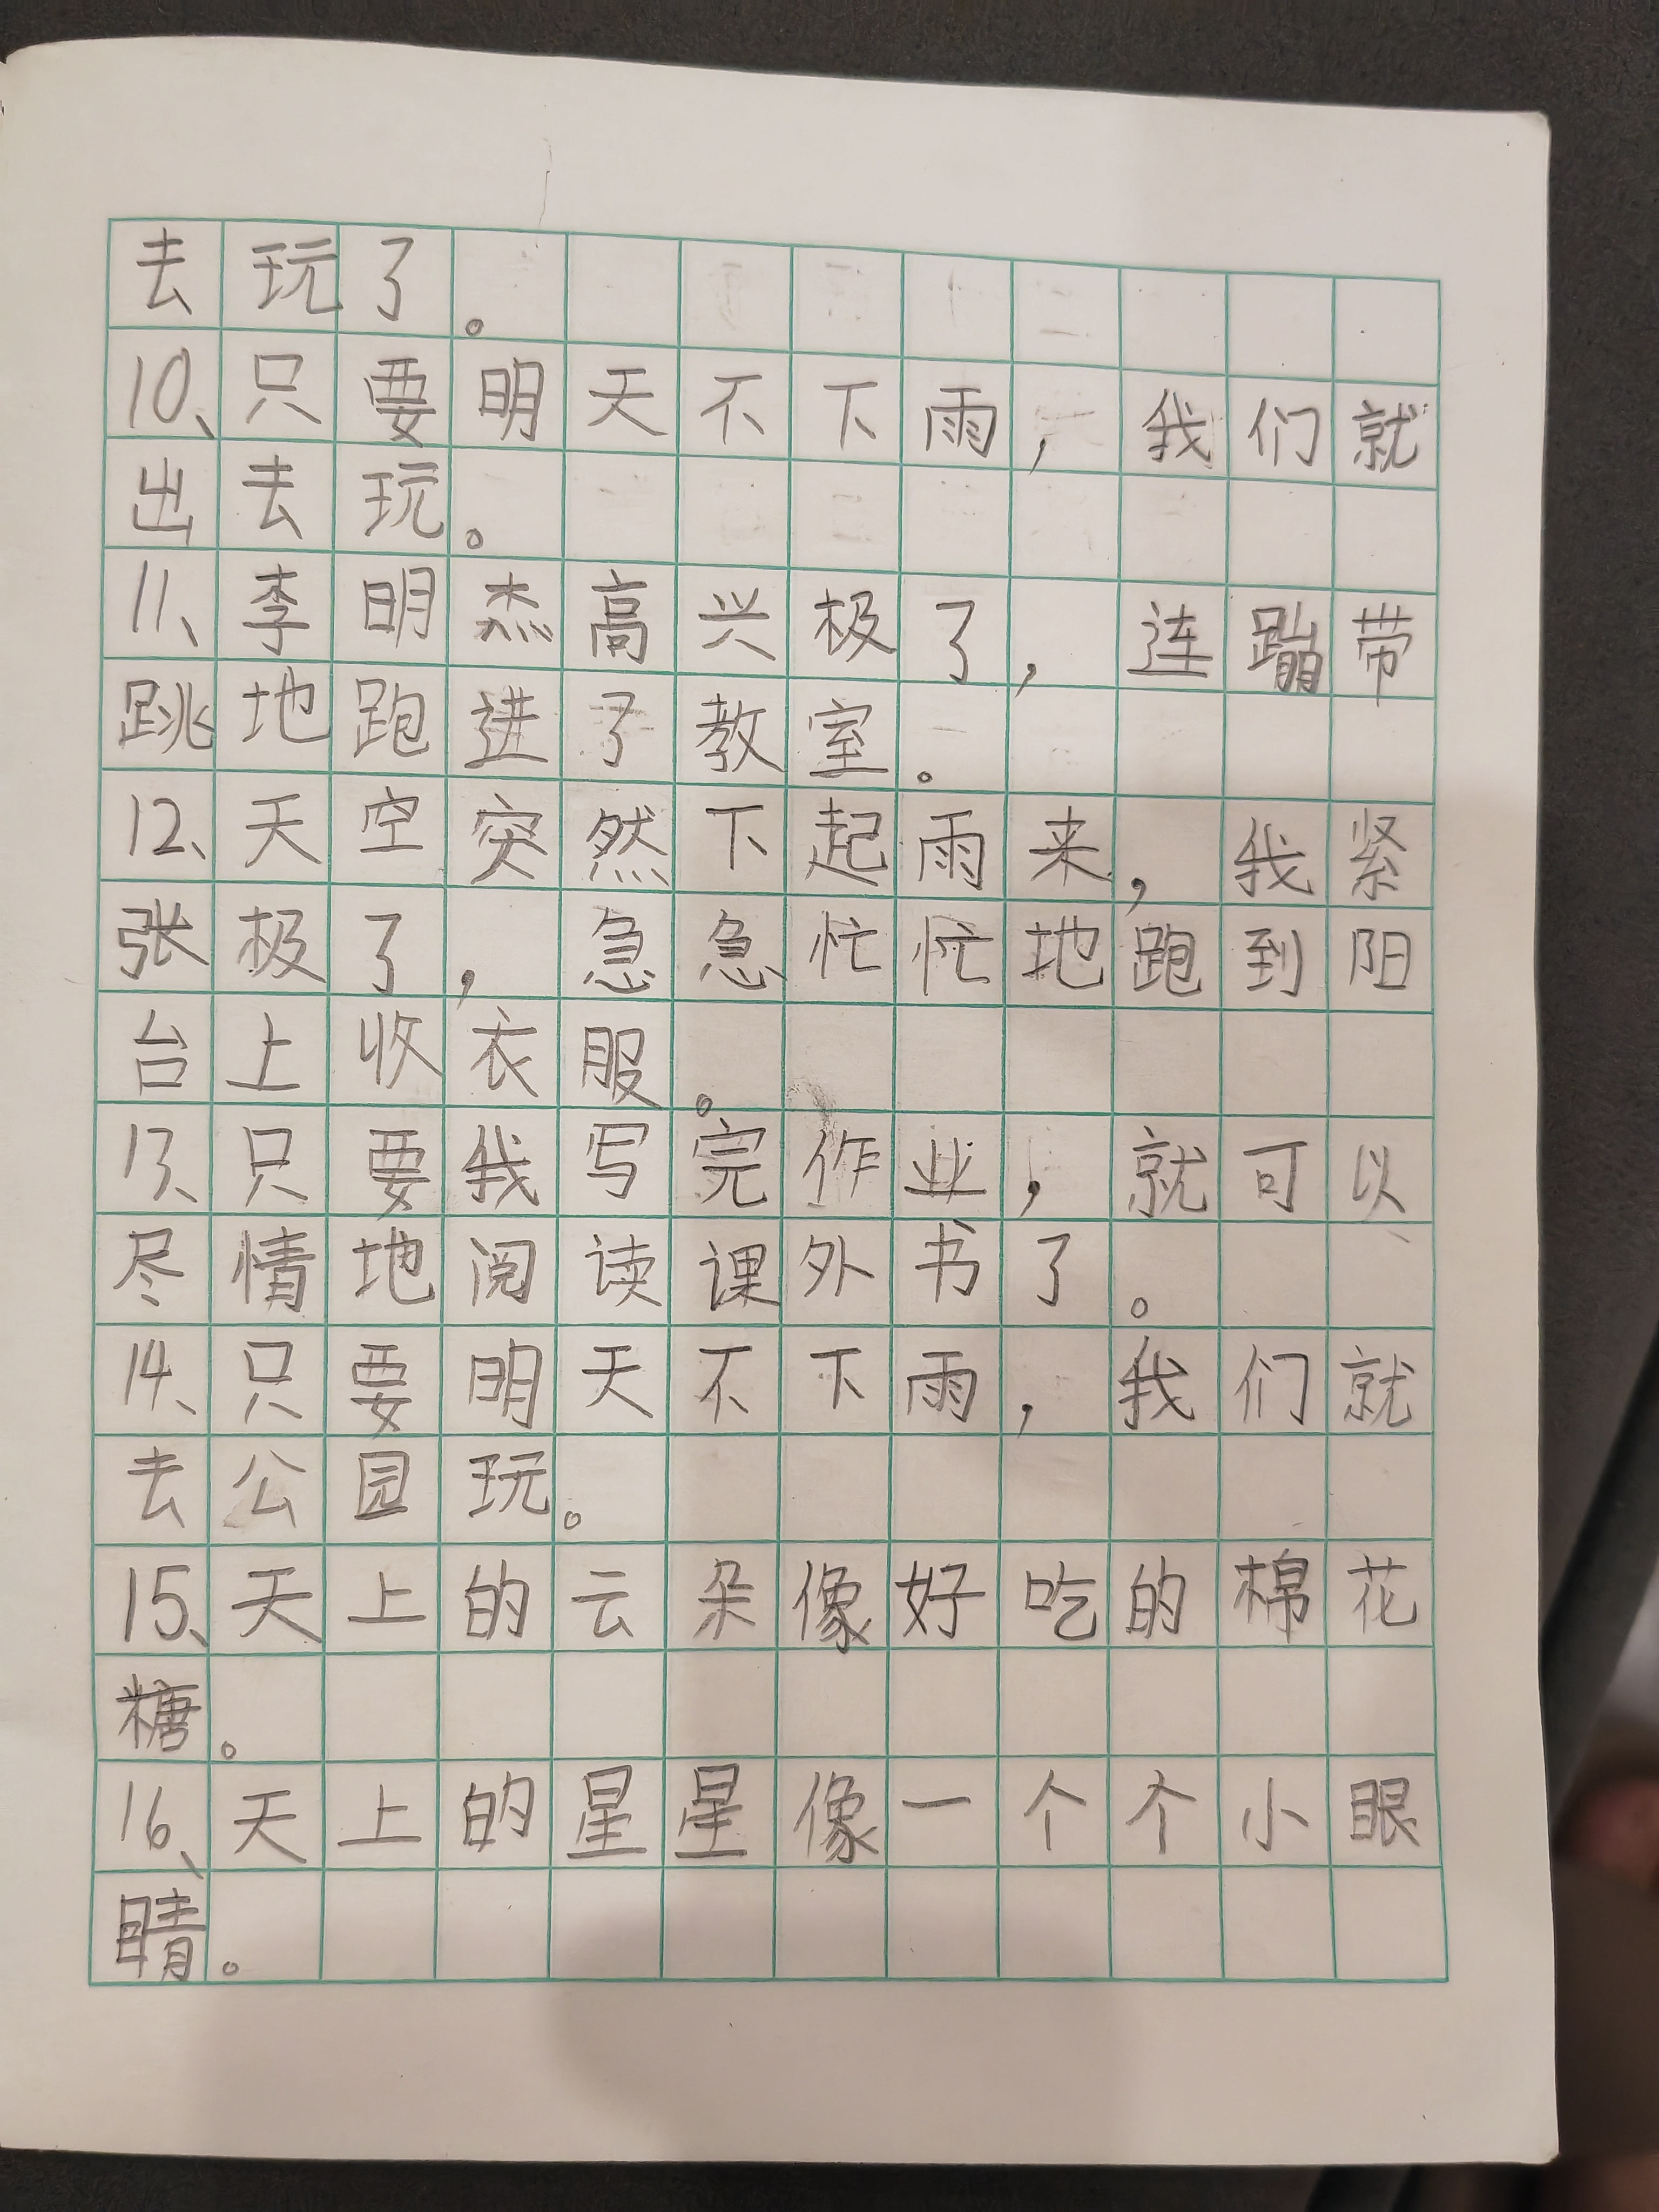 去玩了。
10、只要明天不下雨，我们就
出去玩。
11、李明杰高兴极了，连蹦带
跳地跑进了教室。
12、天空突然下起雨来，我紧
张极了，急急忙忙地跑到阳
台上收衣服。
13、只要我写完作业，就可以
尽情地阅读课外书了。
14、只要明天不下雨，我们就
去公园玩。
15、天上的云朵像好吃的棉花
糖。
16、天上的星星像一个个小眼
睛。